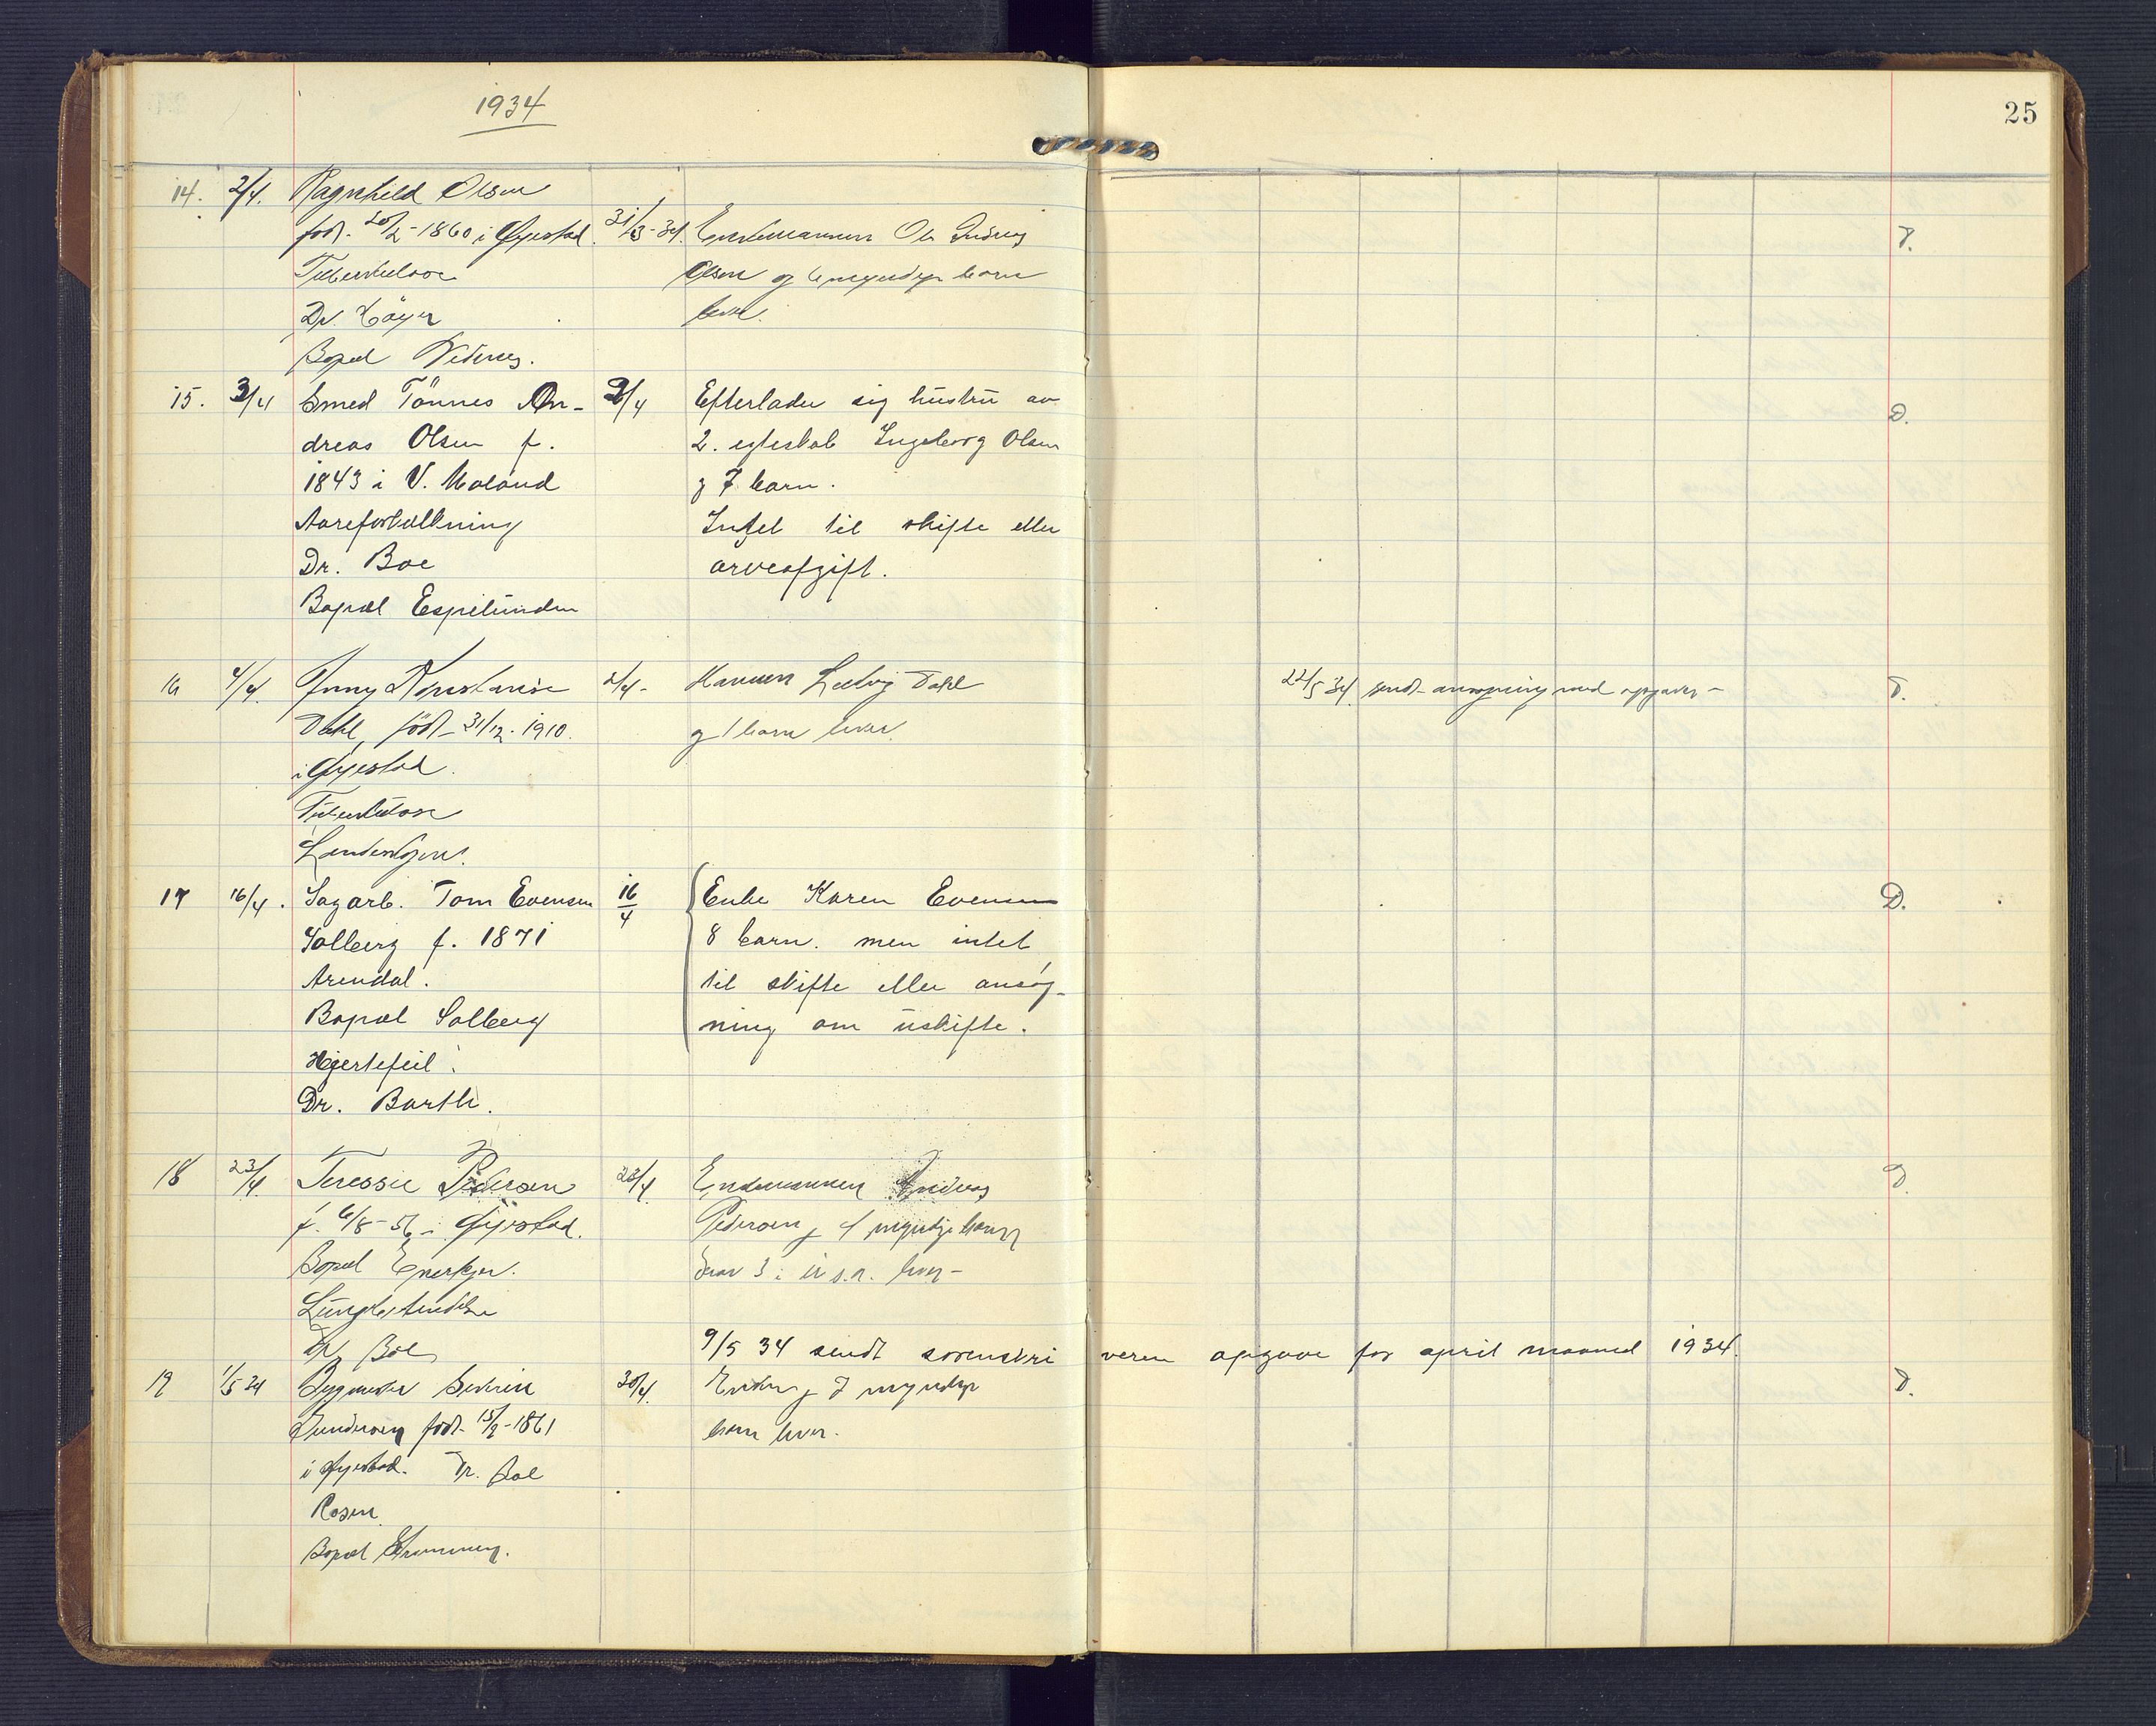 1934
25
14. 2/4. Ragnhild Olsen
født 20/2-1860 i Øyestad. 31/3-34. Enkemannen Ole Andreas
Tuberkulose Olsen og 6 myndige barn
Dr. Høyer lever.
Bopæl Nedenes.
D.
15. 3/4 Smed Tönnes An- 2/4 Efterlader sig hustru av
D.
dreas Olsen f. 2. egteskab Ingeborg Olsen
1843 i V. Moland g 7 barn.
Aareforkalkning Intet til skifte eller
Dr. Boe arveafgift.
Bopæl Espelunden
16 4/4. Jenny Konstanse 2/4- Mannen Ludvig Dahl 22/5 34. sendt ansøgning med opgaver - D.
Dahl, født 31/12-1910. og 1 barn lever.
i Øyestad.
Tuberkulose
17 16/4. Sagarb. Tom Evensen 16/4 Enke Karen Evensen D.
Solberg f. 1871 8 barn. men intet
Arendal. til skifte eller ansøg-
Bopæl Solberg ning om uskifte.
Hjertefeil.
Dr. Barth.
18 23/4. Teressie Pedersen 23/4 Enkemannen Andreas D.
f. 6/8-56 i Øyestad. Pedersen g 4 myndige barn
Bopæl hvorav 3 i U.S.A. lever-
Lungebetændelse
Dr. Boe 9/5 34 sendt sorenskri veren opgave for april maaned 1934.
19 1/5 34 Bygmester Severin 30/4. Enken g 7 myndige D.
Gundersen født 15/2-1861 barn lever.
i Øyestad. Dr. Boe
Rosen
Bopæl Strømmen.